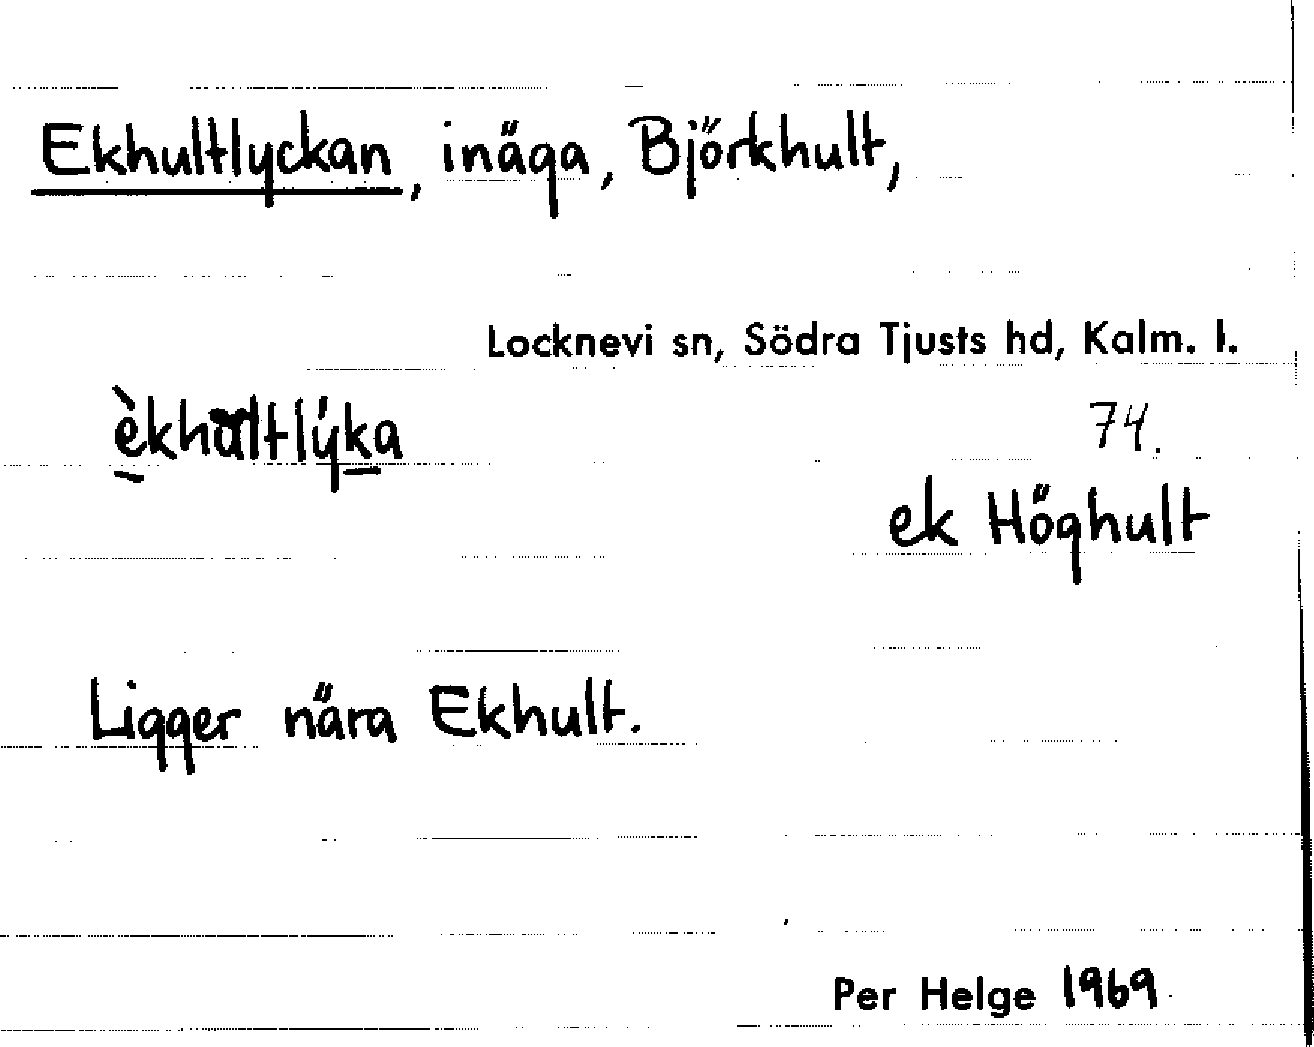 Ekhultlyckan, inäga, Björkhult,
Locknevi sn, Södra Tjusts hd, Kalm. l.
èkhultlýka
74.
ek Höghult
Ligger nära Ekhult.
Per Helge 1969